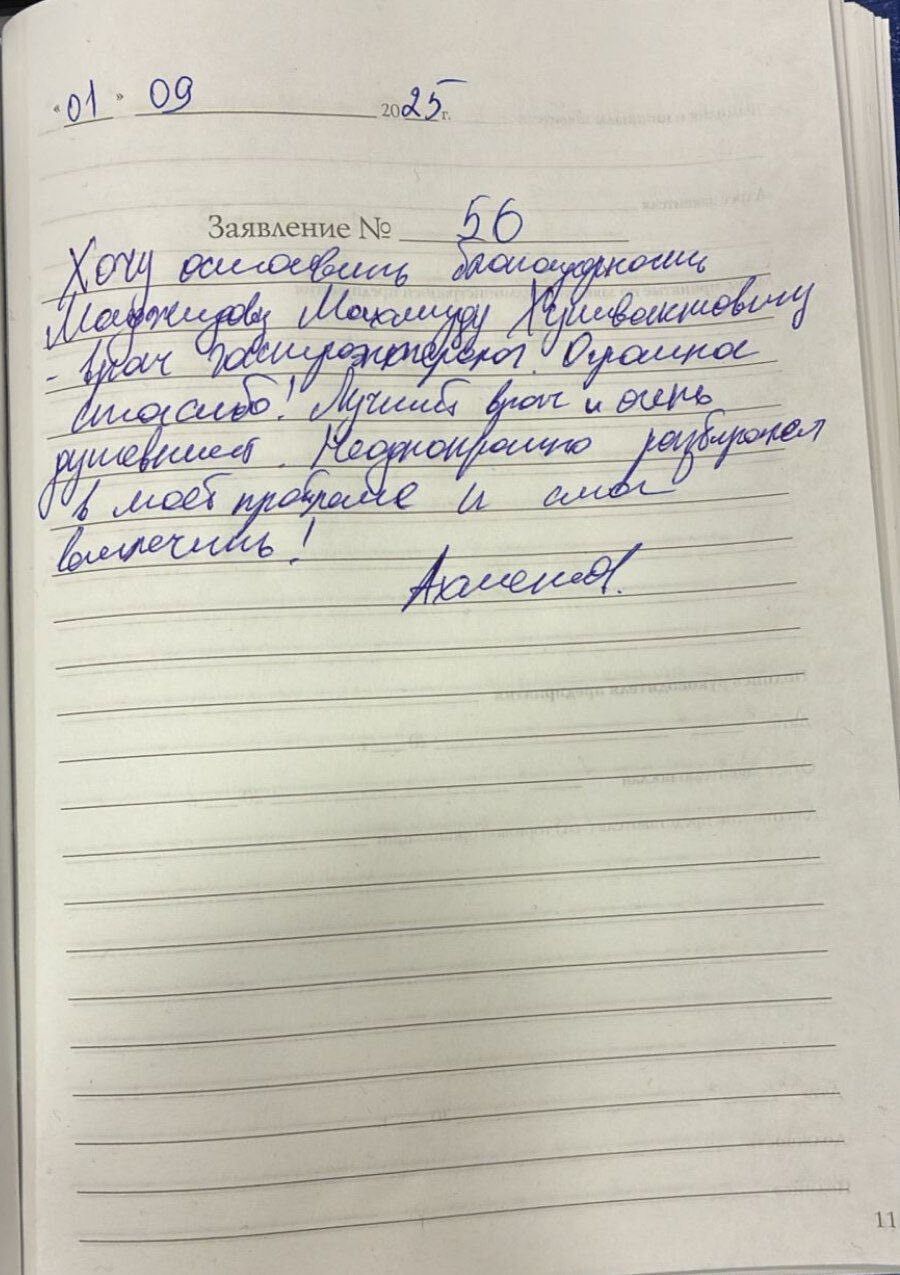 «01» 09 2025 г.
Заявление № 56
Хочу оставить благодарность
Маджидову Махмуду Хушвактовичу
- врач гастроэнтеролог. Огромное
спасибо! Лучший врач и очень
душевный. Неоднократно разбирался
в моей проблеме и смог
вылечить!
Ахметов.
11